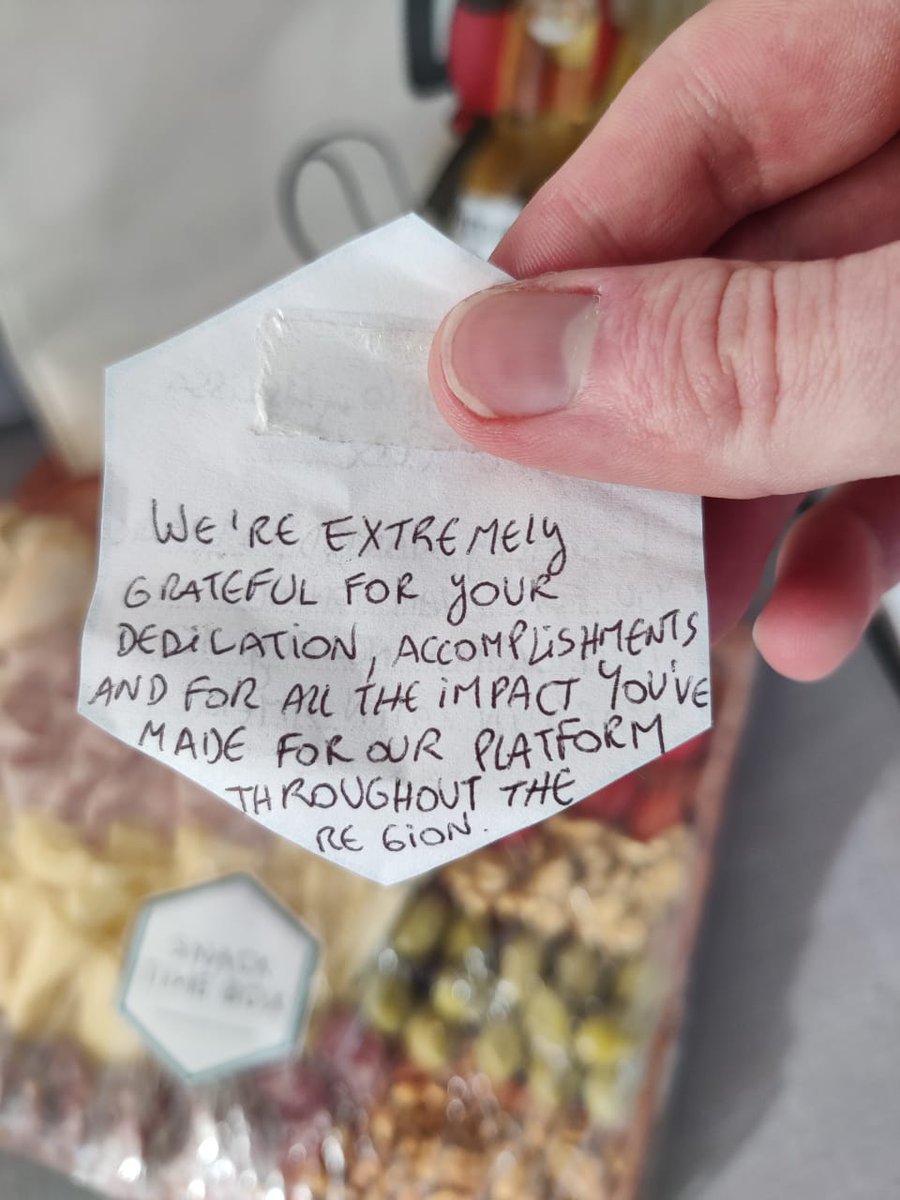 WE'RE EXTREMELY
GRATEFUL FOR YOUR
DEDICATION, ACCOMPLISHMENTS
AND FOR ALL THE IMPACT YOU'VE
MADE FOR OUR PLATFORM
THROUGHOUT THE
REGION.
SNACK
TIME BOX